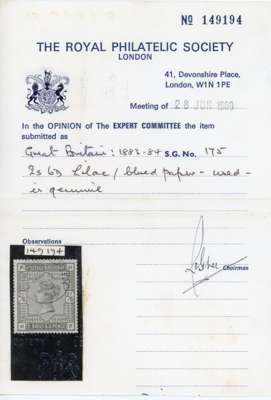 No 149194
THE ROYAL PHILATELIC SOCIETY
LONDON
41, Devonshire Place,
London, W1N 1PE
Meeting of 28 JUN 1989
In the OPINION of The EXPERT COMMITTEE the item
submitted as
Great Britain: 1883-84 S.G. No. 175
2s 6d Lilac / blued paper - used -
is genuine
Observations
149194
Chairman